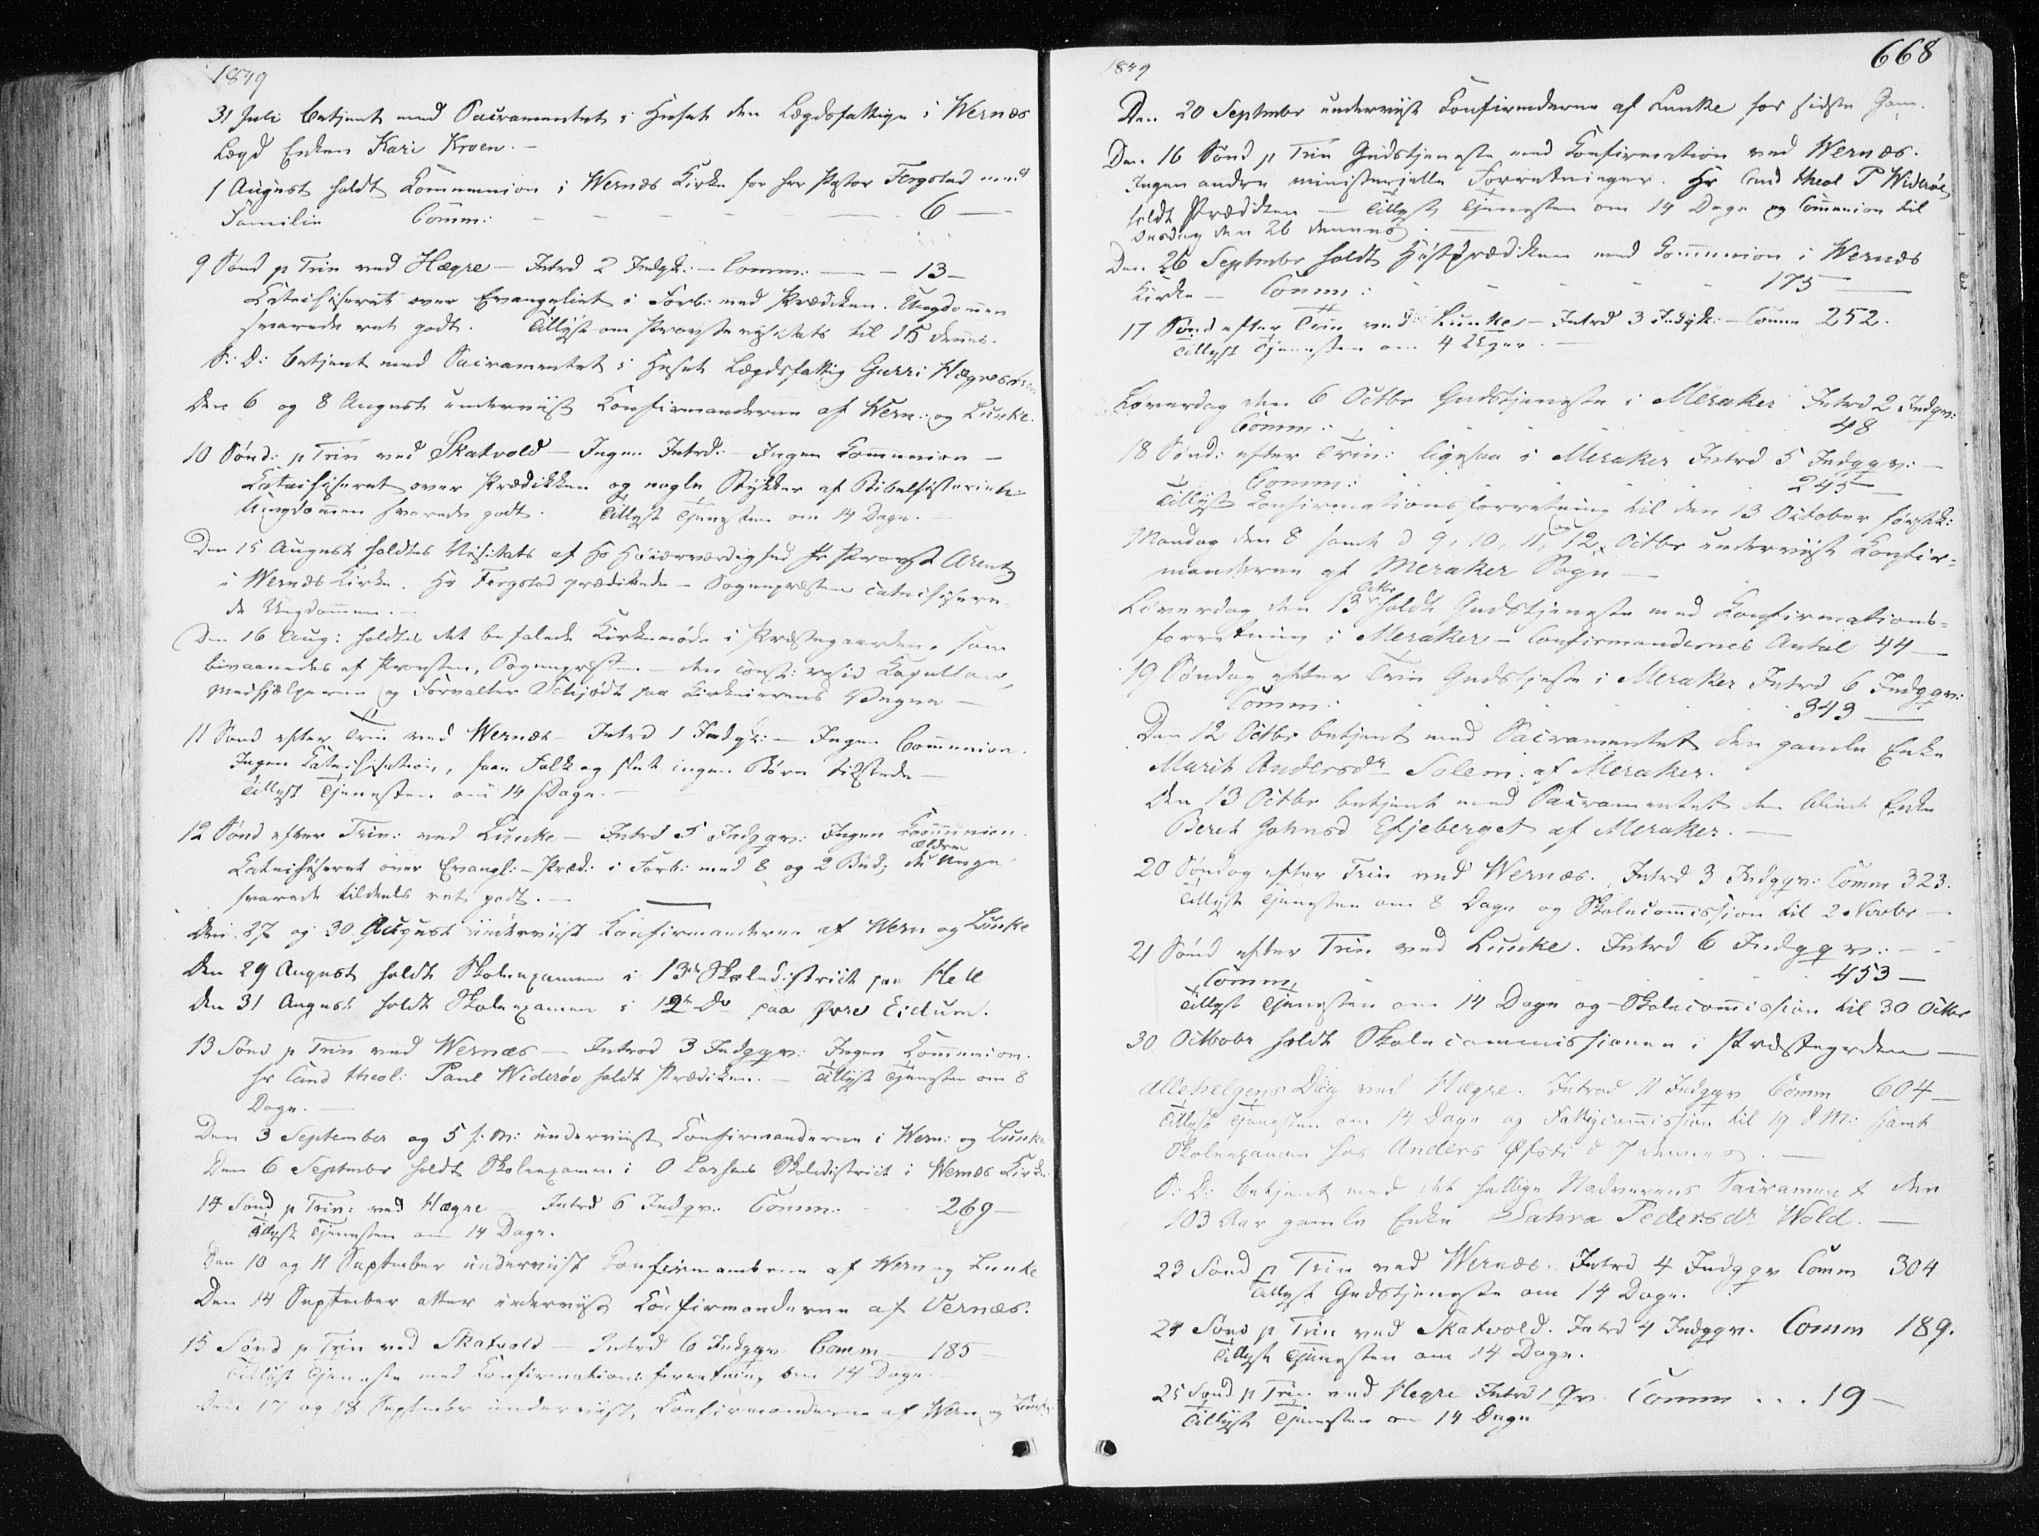 1849
31 Juli betjent med Sacramentet i Huset den Lægdsfattige i Wernæs
Lægd Enken Kari Kroen. —
1 August holdt Communion i Wernæs Kirke for Hr Pastor Fergstad med
Familie Comm: — — — — — 6 —
9 Sønd p Trin ved Hægre — Introd 2 Indgk: — Comm: — — 13 —
Catechiseret over Evangeliet i Forb: med Prædiken. Ungdommen
svarede ret godt. Tillyst om Provstevisitats til 15 dennes.
S: D: betjent med Sacramentet i Huset Lægdsfattig Gurri Hægresdtr
Den 6 og 8 August underviist Konfirmanderne af Wern: og Lunke.
10 Sønd: p Trin ved Skatvold — Ingen Introd: — Ingen Communion —
Catechiseret over Prædikken og nogle Stykker af Bibelhistorien
Ungdommen svarede godt. Tillyst Tjenesten om 14 Dage.
Den 15 August holdtes Visitats af Hs Høiærværdighed Hr Provst Arentz
i Wernæs Kirke. Hr Fergstad prædikede — Sognepræsten catechisere-
de Ungdommen. —
Den 16 Aug: holdtes det befalede Kirkemøde i Præstegaarden, som
bivaanedes af Provsten, Sognepresten — den const: resid Kapellan,
Medhjælperne og Forvalter Schjødt paa Kirkeeierens Vegne —
11 Sønd efter Trin ved Wernæs — Introd 1 Indgk: — Ingen Communion.
Ingen Catechisation, faae Folk og slet ingen Børn tilstede —
Tillyst Tjenesten om 14 Dage. —
12 Sønd efter Trin: ved Lunke — Introd 5 Indgqv: Ingen Communion.
Catechiseret over Evangl: — Præd: i Forb: med 8 og 2 Bud; de ældre Unge
svarede tildeels ret godt. —
Den 27 og 30 August underviist Konfirmanderne af Wern og Lunke
Den 29 August holdt Skoleexamen i 13de Skoledistrict paa Hell
Den 31 August holdt Skoleexamen i 12te Do paa Øvre Eidum.
13 Sønd p Trin ved Wernæs — Introd 3 Indgqv: Ingen Communion.
Hr Cand theol: Paul Widerøe holdt Prædiken. — Tillyst Tjenesten om 8
Dage. —
Den 3 September og 5 s: M: underviist Konfirmanderne i Wern: og Lunke
Den 6 Septembr holdt Skoleexamen i O Larsens Skoledistrict i Wernæs Kirke.
14 Sønd p Trin: ved Hægre — Introd 6 Indgqv: Comm: 269 —
Tillyst Tjenesten om 14 Dage.
Den 10 og 11 September underviist Confirmanterne af Wern og Lunke
Den 14 September atter underviist Confirmanderne af Vernæs.
15 Sønd p Trin ved Skatvold — Introd 6 Indgqv: Comm — 185 —
Tillyst Tjeneste med Confirmationsforretning om 14 Dage. —
Den 17 og 18 Septembr underviist Confirmanderne af Wern og Lunke
668
1849
Den 20 Septembr underviist Confirmderne af Lunke for sidste Gang.
Den 16 Sønd p Trin Gudstjeneste med Confirmation ved Wernæs.
Ingen andre ministerielle Forretninger. Hr Cand theol P Widerøe
holdt Prædiken — Tillyst Tjenesten om 14 Dage og Communion til
Onsdag den 26 dennes. —
Den 26 Septembr holdt Høstprædiken med Communion i Wernæs
Kirke — Comm: 175 —
17 Sønd efter Trin ved Lunke — Introd 3 Indgk: — Comm 252.
Tillyst Tjenesten om 4 Uger. —
Løverdag den 6 Octbr Gudstjeneste i Meraker Introd 2 Indgqv:
Comm: 48
18 Sønd: efter Trin: ligesaa i Meraker Introd 5 Indgqv: —
Comm: 245 —
Tillyst Confirmationsforretning til den 13 October først:
Mandag den 8 samt d 9, 10, 11, og 12 Octbr underviist Konfir-
manderne af Meraker Sogn —
Løverdag den 13 Octbr holdt Gudstjeneste med Konfirmations-
forretning i Meraker — Confirmandernes Antal 44 —
19 Søndag efter Trin Gudstjeste i Meraker Introd 6 Indgqv:
Comm: 343 —
Den 12 Octbr betjent med Sacramentet den gamle Enke
Marit Andersdr Solem af Meraker.
Den 13 Octbr betjent med Sacramentet den blinde Enke
Berit Johnsd Efjeberget af Meraker. —
20 Søndag efter Trin ved Wernæs. Introd 3 Indgqv: Comm 323.
Tillyst Tjenesten om 8 Dage og Skolecommission til 2 Novbr —
21 Sønd efter Trin ved Lunke. Introd 6 Indgqv: — -
Comm 453 —
Tillyst Tjenesten om 14 Dage og Skolecommission til 30 Octbr
30 October holdt Skolecommissionen i Præstegrden —
Allehelgens Dag ved Hægre. Introd 11 Indgqv Comm 604 —
Tillyst Tjenesten om 14 Dage og Fattigcommission til 19 d M: samt
Skoleexamen hos Anders Øfsti d 7 dennes. —
S: D: betjent med det hellige Nadverens Sacrament den
103 Aar gamle Enke Sahra Pedersdr Wold. —
23 Sønd p Trin ved Wernæs. Introd 4 Indgqv Comm 304
Tillyst Gudstjeneste om 14 Dage.
24 Sønd p Trin ved Skatvold. Introd 4 Indgqv. Comm 189.
Tillyst Tjenesten om 14 Dage.
25 Sønd p Trin ved Hegre Introd 1 Qv Comm . . . 19 —
Tillyst Tjenesten om 14 Dage